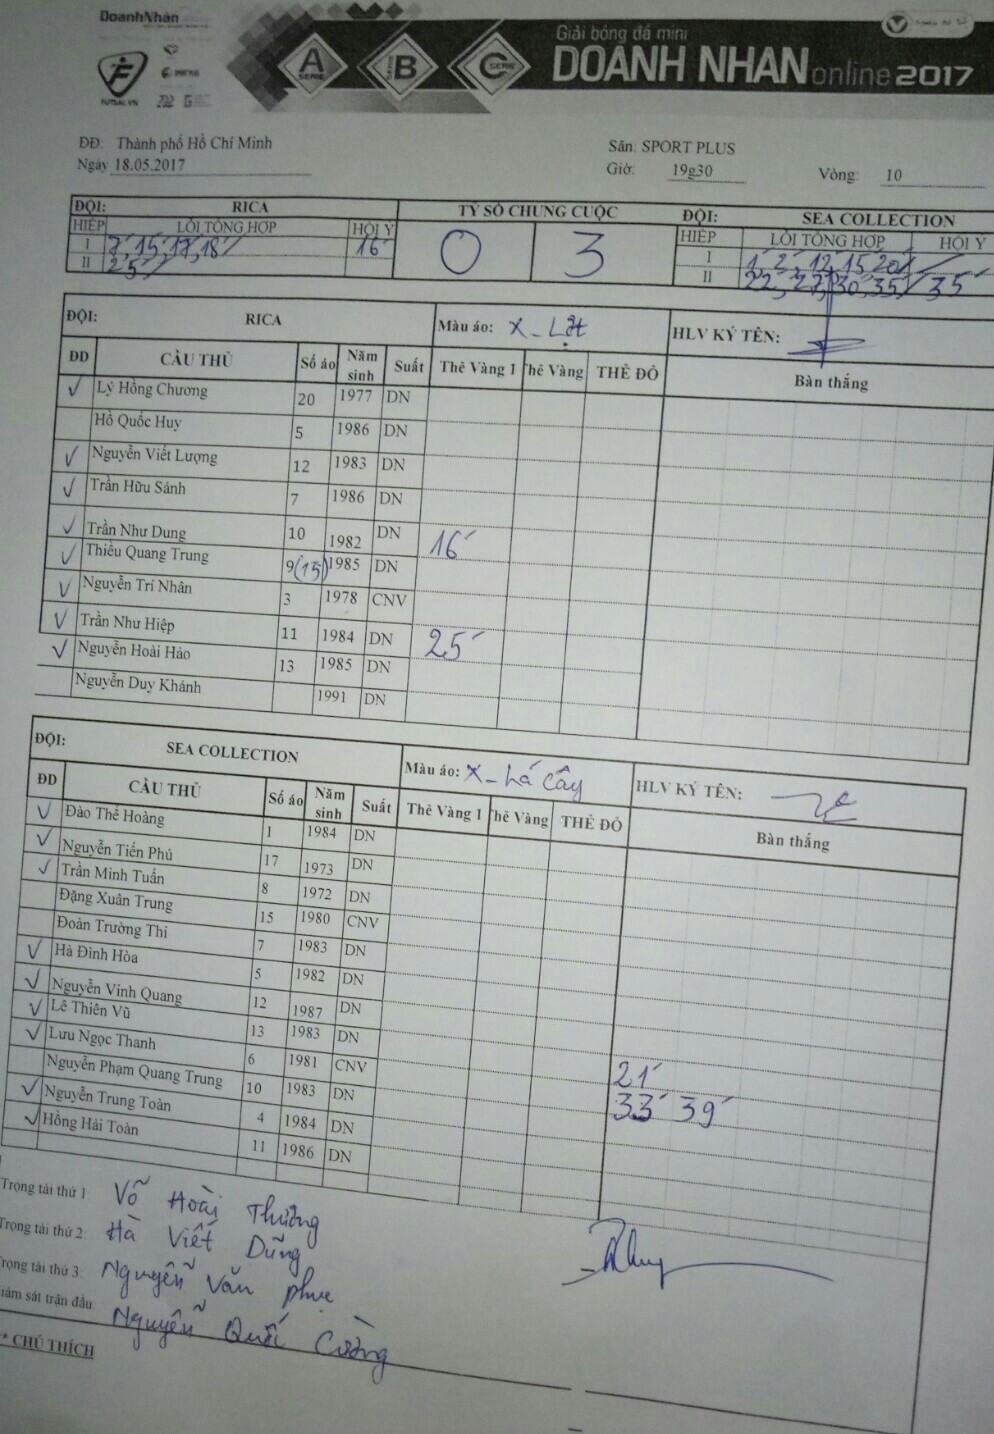 DoanhNhân
FUTSAL.VN
A SERIE B SERIE C SERIE
Giải bóng đá mini
DOANH NHAN online 2017
ĐĐ: Thành phố Hồ Chí Minh
Sân: SPORT PLUS
Ngày 18.05.2017
Giờ: 19g30
Vòng: 10
ĐỘI: RICA TỶ SỐ CHUNG CUỘC ĐỘI: SEA COLLECTION
HIỆP LỖI TỔNG HỢP HỘI Ý 0 3 HIỆP LỖI TỔNG HỢP HỘI Ý
I 7' 15' 17' 18' 16' I 1' 2' 12' 15' 20'
II 25' II 22' 27' 30' 35' 35'
ĐỘI: RICA Màu áo: X - Lợt HLV KÝ TÊN:
ĐD CẦU THỦ Số áo Năm sinh Suất Thẻ Vàng 1 Thẻ Vàng THẺ ĐỎ Bàn thắng
✓ Lý Hồng Chương 20 1977 DN
Hồ Quốc Huy 5 1986 DN
✓ Nguyễn Viết Lượng 12 1983 DN
✓ Trần Hữu Sánh 7 1986 DN
✓ Trần Như Dung 10 1982 DN 16'
✓ Thiều Quang Trung 9 (15) 1985 DN
✓ Nguyễn Trí Nhân 3 1978 CNV
✓ Trần Như Hiệp 11 1984 DN 25'
✓ Nguyễn Hoài Hảo 13 1985 DN
Nguyễn Duy Khánh 1991 DN
ĐỘI: SEA COLLECTION Màu áo: X - Lá Cây HLV KÝ TÊN:
ĐD CẦU THỦ Số áo Năm sinh Suất Thẻ Vàng 1 Thẻ Vàng THẺ ĐỎ Bàn thắng
✓ Đào Thế Hoàng 1 1984 DN
✓ Nguyễn Tiến Phú 17 1973 DN
✓ Trần Minh Tuấn 8 1972 DN
Đặng Xuân Trung 15 1980 CNV
Đoàn Trường Thi 7 1983 DN
✓ Hà Đình Hòa 5 1982 DN
✓ Nguyễn Vinh Quang 12 1987 DN
✓ Lê Thiên Vũ 13 1983 DN
✓ Lưu Ngọc Thanh 6 1981 CNV 21'
Nguyễn Phạm Quang Trung 10 1983 DN 33' 39'
✓ Nguyễn Trung Toàn 4 1984 DN
✓ Hồng Hải Toàn 11 1986 DN
Trọng tài thứ 1 Võ Hoài Thường
Trọng tài thứ 2: Hà Viết Dũng
Trọng tài thứ 3: Nguyễn Văn Phục
Giám sát trận đấu: Nguyễn Quốc Cường
** CHÚ THÍCH